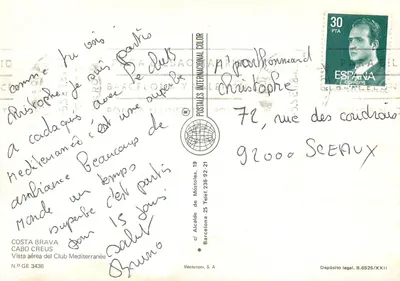 comme tu vois
Christophe je suis partis
a cadaquès avec le club
mediterranée c'est une superbe
ambiance Beaucoups de
monde un temps
superbe c'est partis
pour 15 jours.
salut
Bruno
COSTA BRAVA
CABO CREUS
Vista aérea del Club Mediterranée
N.º GE 3436
POSTALES INTERNACIONAL COLOR
c/ Alcalde de Móstoles, 19
Barcelona-25 Telef. 236-92-21
Westcolor, S. A
30
PTA
ESPAÑA
Christophe
72, rue des
92000 SCEAUX
Depósito legal, B.